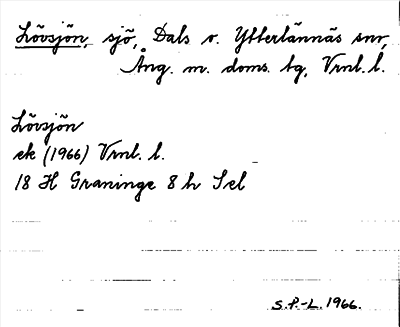 Lövsjön, sjö, Dals o. Ytterlännäs snr,
Ång. m. doms. tg, Vrnl. l.
Lövsjön
ek (1966) Vrnl. l.
18 H Graninge 8 h Sel
S.P.-L. 1966.